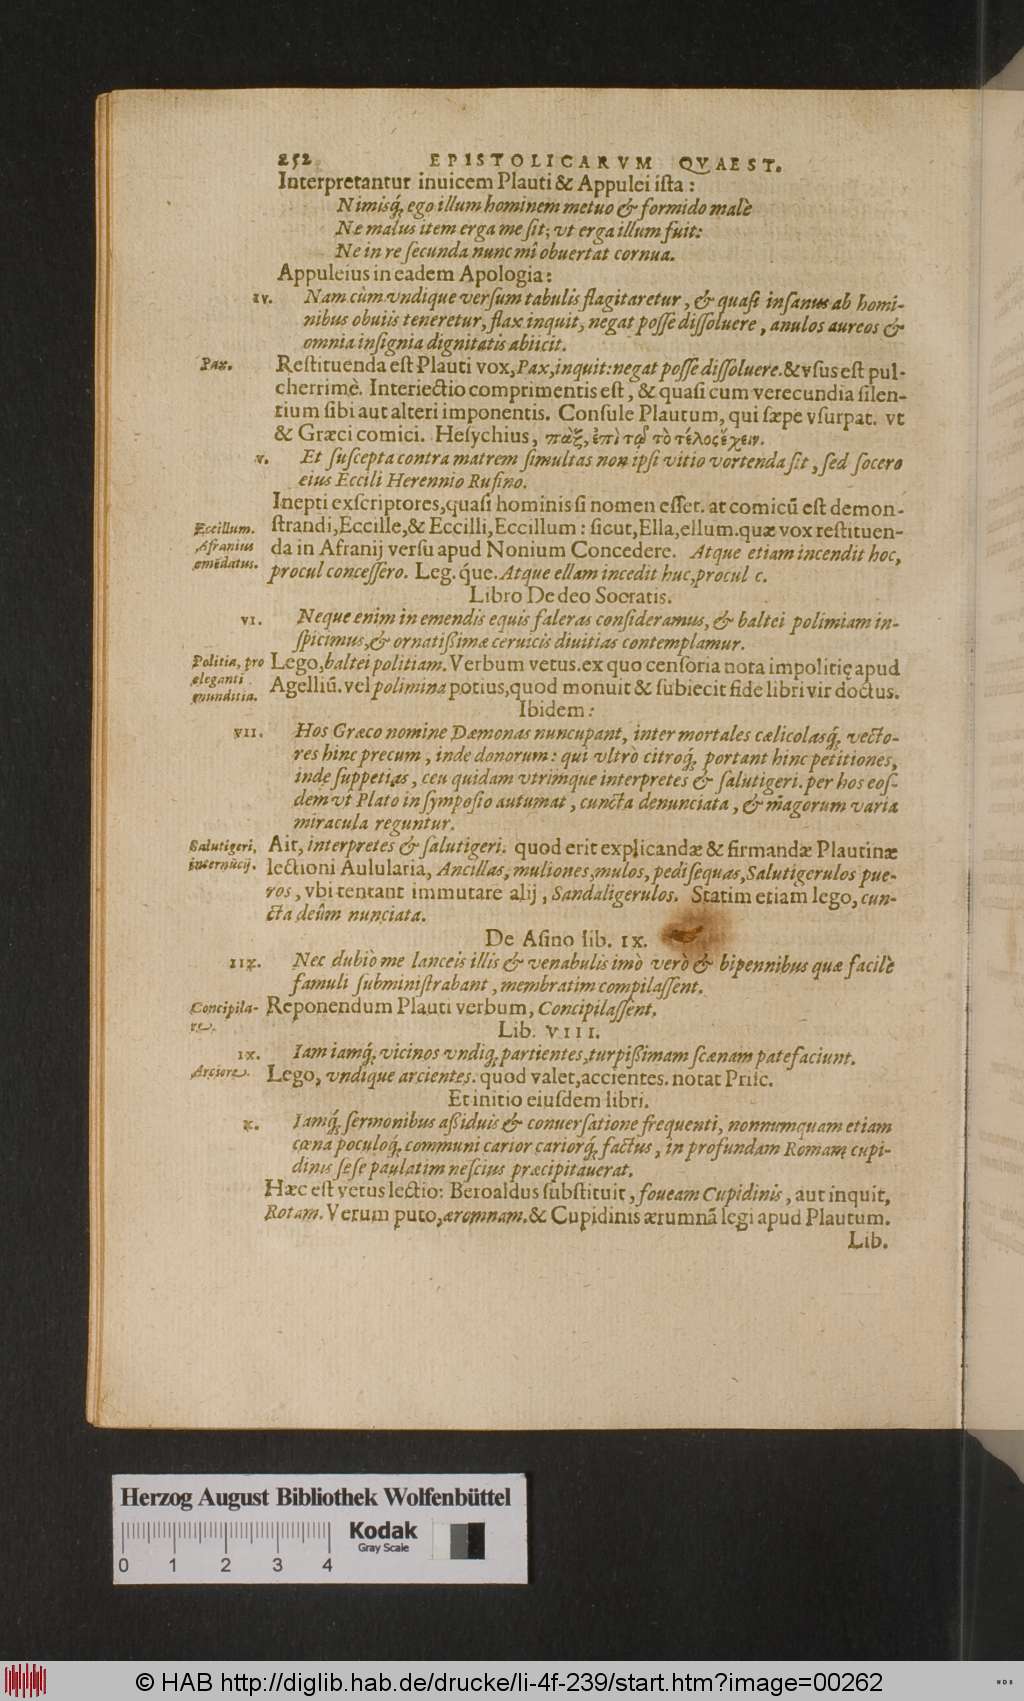 252 EPISTOLICARVM QVAEST.
Interpretantur inuicem Plauti & Appulei ista:
Nimisq́; ego illum hominem metuo & formido malè
Ne malus item erga me sit; vt erga illum fuit:
Ne in re secunda nunc mî obuertat cornua.
Appuleius in eadem Apologia:
IV. Nam cùm vndique versum tabulis flagitaretur, & quasi insanus ab homi-
nibus obuiis teneretur, flax inquit, negat posse dissoluere, anulos aureos &
omnia insignia dignitatis abiicit.
Pax. Restituenda est Plauti vox, Pax, inquit: negat posse dissoluere. & vsus est pul-
cherrimè. Interiectio comprimentis est, & quasi cum verecundia silen-
tium sibi aut alteri imponentis. Consule Plautum, qui sæpe vsurpat. vt
& Græci comici. Hesychius, πὰξ, ἐπὶ τῷ τὸ τέλος ἔχειν.
V. Et suscepta contra matrem simultas non ipsi vitio vortenda sit, sed socero
eius Eccili Herennio Rufino.
Inepti exscriptores, quasi hominis si nomen esset. at comicū est demon-
Eccillum. strandi, Eccille, & Eccilli, Eccillum: sicut, Ella, ellum. quæ vox restituen-
Afranius da in Afranij versu apud Nonium Concedere. Atque etiam incendit hoc,
emēdatus. procul concessero. Leg. q́ue. Atque ellam incedit huc, procul c.
Libro De deo Socratis.
VI. Neque enim in emendis equis faleras consideramus, & baltei polimiam in-
spicimus, & ornatißimæ ceruicis diuitias contemplamur.
Politia, pro Lego, baltei politiam. Verbum vetus. ex quo censoria nota impolitię apud
eleganti munditia. Agelliū. vel polimina potius, quod monuit & subiecit fide libri vir doctus.
Ibidem:
VII. Hos Græco nomine Dæmonas nuncupant, inter mortales cælicolasq́; vecto-
res hinc precum, inde donorum: qui vltrò citroq́; portant hinc petitiones,
inde suppetias, ceu quidam vtrimque interpretes & salutigeri. per hos eos-
dem vt Plato in symposio autumat, cuncta denunciata, & magorum varia
miracula reguntur.
Salutigeri, Ait, interpretes & salutigeri. quod erit explicandæ & firmandæ Plautinæ
internūcij. lectioni Aulularia, Ancillas, muliones, mulos, pedisequas, Salutigerulos pue-
ros, vbi tentant immutare alij, Sandaligerulos. Statim etiam lego, cun-
cta deûm nunciata.
De Asino lib. IX.
IIX. Nec dubiò me lanceis illis & venabulis imò verò & bipennibus quæ facilè
famuli subministrabant, membratim compilassent.
Concipila- Reponendum Plauti verbum, Concipilassent.
re. Lib. VIII.
IX. Iam iamq́; vicinos vndiq; partientes, turpißimam scænam patefaciunt.
Arcire. Lego, vndique arcientes. quod valet, accientes. notat Prisc.
Et initio eiusdem libri.
X. Iamq́; sermonibus aßiduis & conuersatione frequenti, nonnumquam etiam
cœna poculoq́; communi carior cariorq́; factus, in profundam Romanę cupi-
dinis sese paulatim nescius præcipitauerat.
Hæc est vetus lectio: Beroaldus substituit, foueam Cupidinis, aut inquit,
Rotam. Verum puto, æromnam. & Cupidinis ærumnā legi apud Plautum.
Lib.
Herzog August Bibliothek Wolfenbüttel
Kodak
Gray Scale
0 1 2 3 4
© HAB http://diglib.hab.de/drucke/li-4f-239/start.htm?image=00262